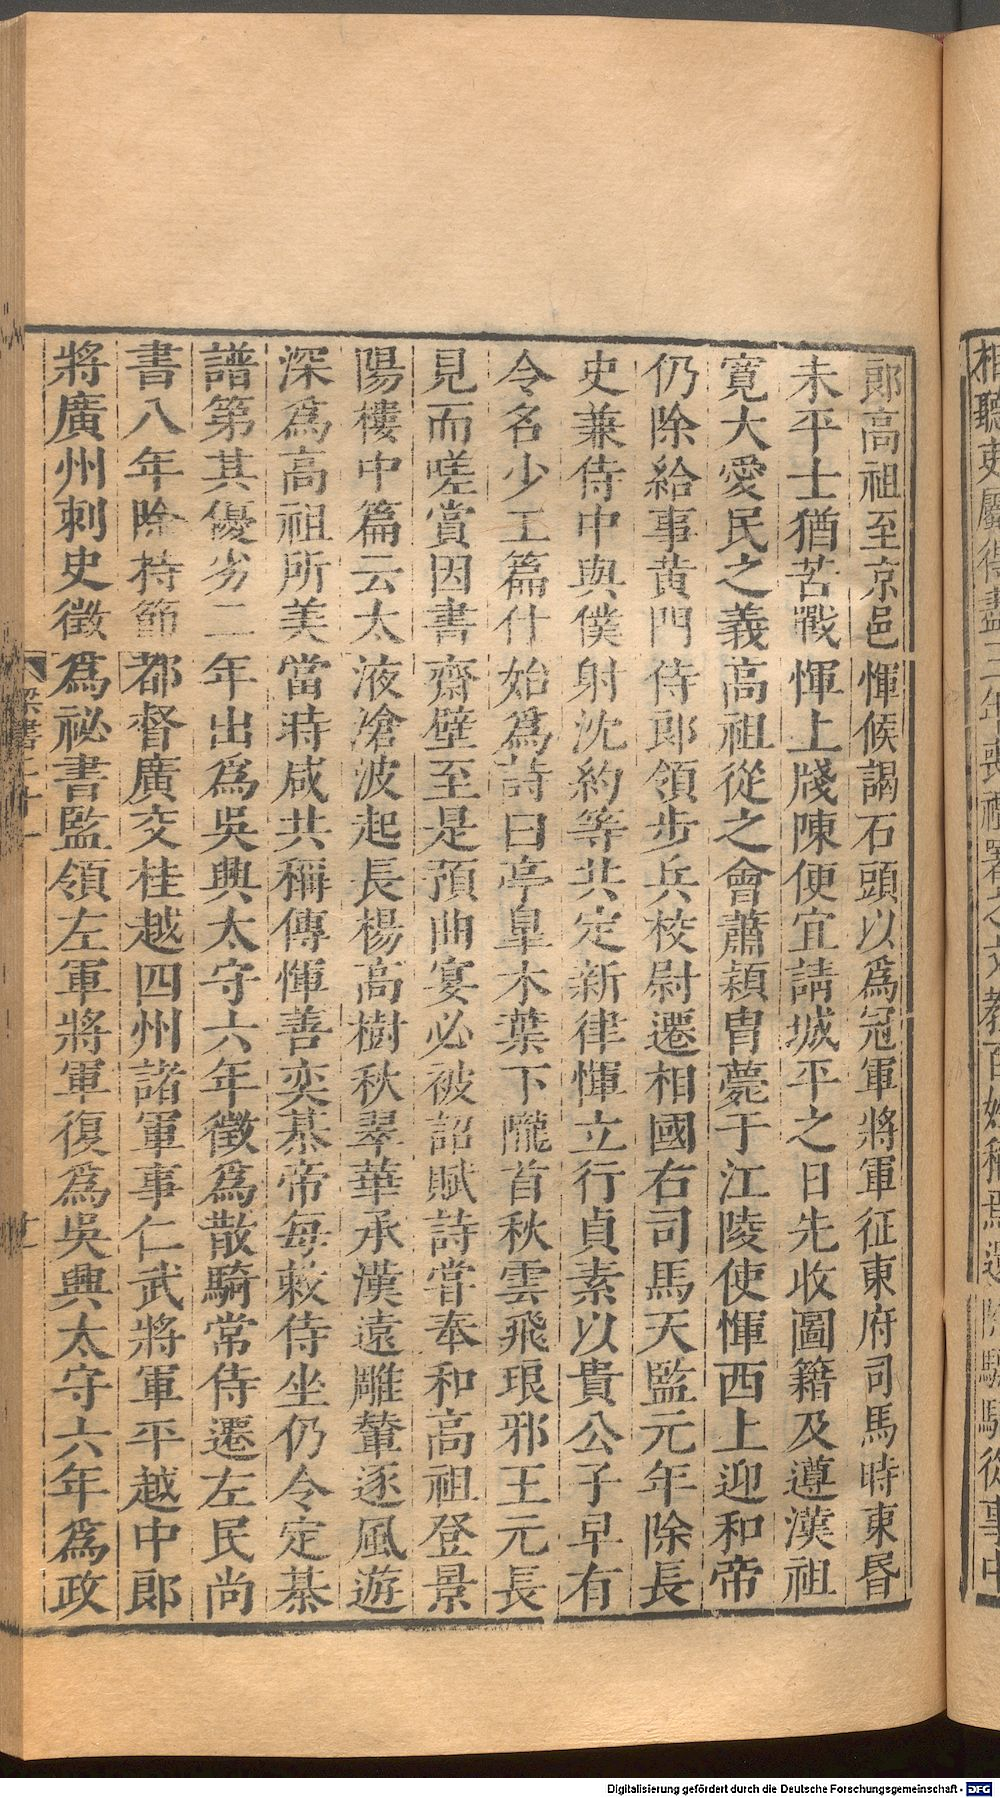 相聽吏屬得盡三年喪禮署之文教百姓稱焉還除驃騎從事中
郎高祖至京邑惲候謁石頭以爲冠軍將軍征東府司馬時東昏
未平士猶苦戰惲上牋陳便宜請城平之日先收圖籍及遵漢祖
寛大愛民之義高祖從之會蕭穎胄薨于江陵使惲西上迎和帝
仍除給事黄門侍郎領步兵校尉遷相國右司馬天監元年除長
史兼侍中與僕射沈約等共定新律惲立行貞素以貴公子早有
令名少工篇什始爲詩曰亭臯木葉下隴首秋雲飛琅邪王元長
見而嗟賞因書齋壁至是預曲宴必被詔賦詩嘗奉和高祖登景
陽樓中篇云太液滄波起長楊高樹秋翠華承漢遠雕輦逐風遊
深爲高祖所美當時咸共稱傳惲善奕棊帝每敕侍坐仍令定棊
譜第其優劣二年出爲吳興太守六年徵爲散騎常侍遷左民尚
書八年除持節都督廣交桂越四州諸軍事仁武將軍平越中郎
將廣州刺史徵爲祕書監領左軍將軍復爲吳興太守六年爲政
梁書二十一
十一
Digitalisierung gefördert durch die Deutsche Forschungsgemeinschaft - DFG